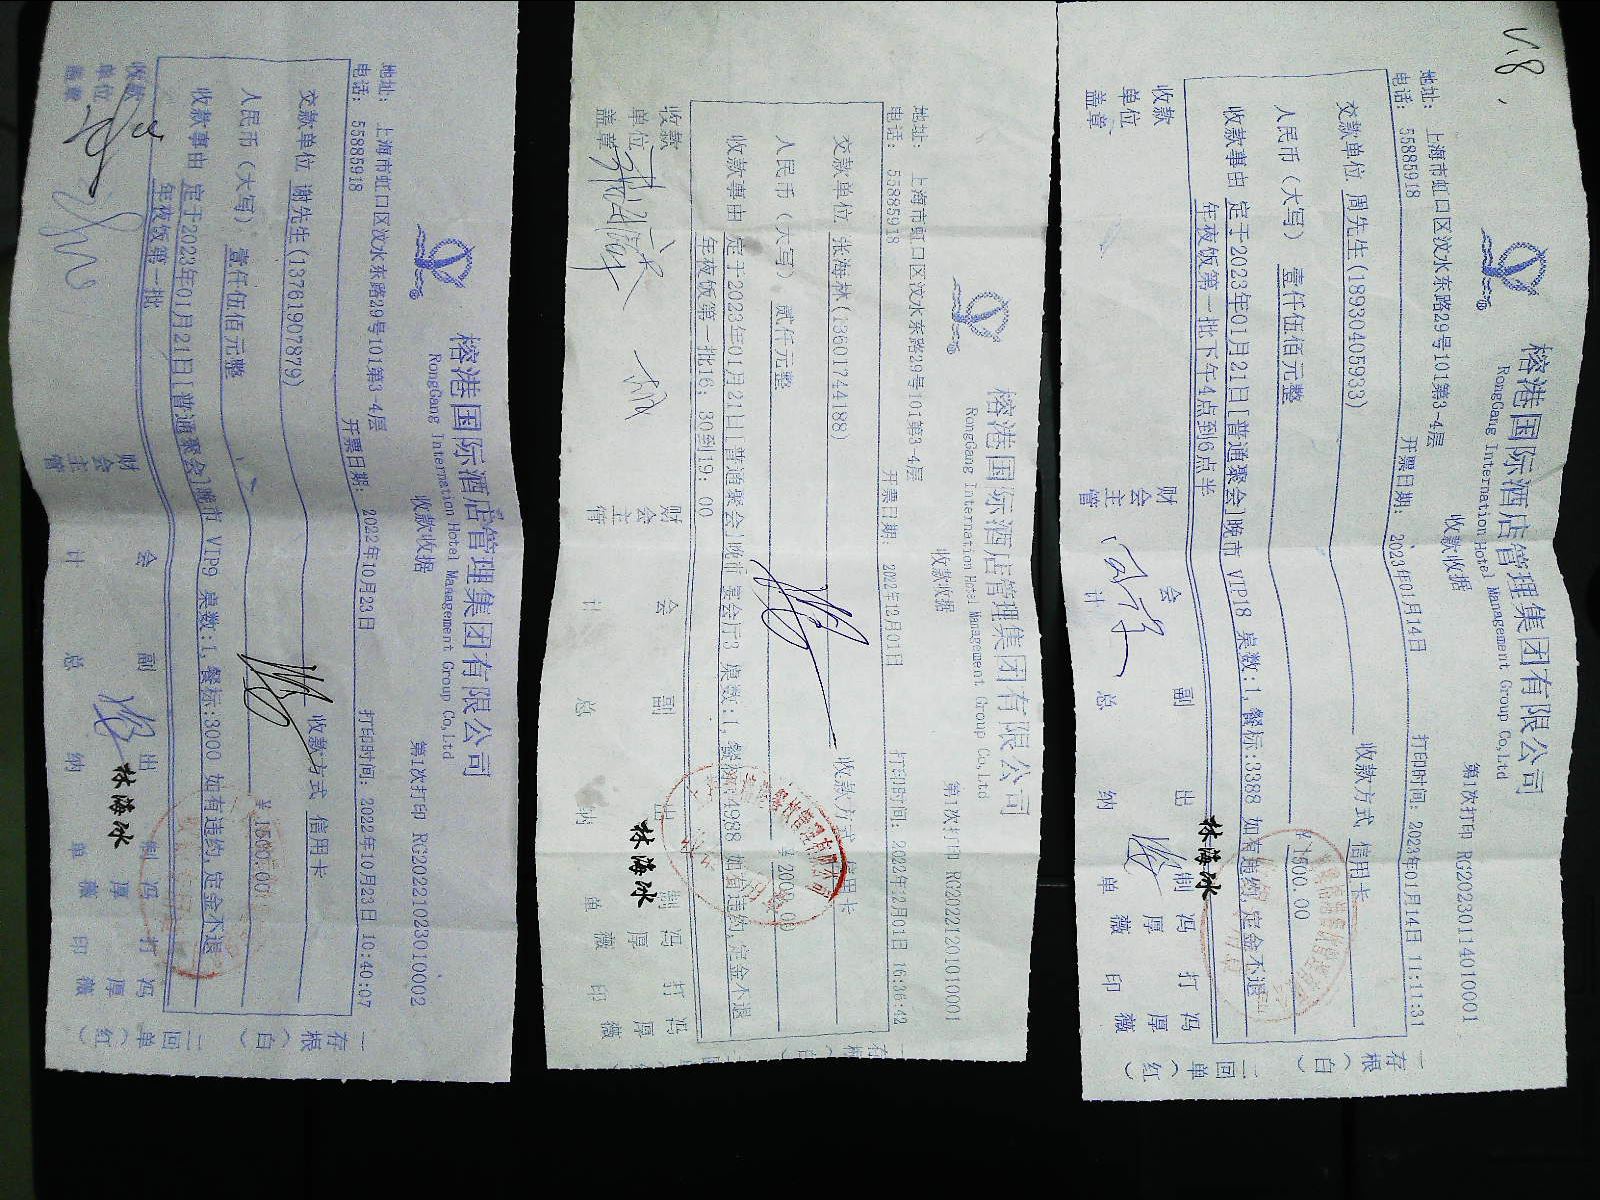 榕港国际酒店管理集团有限公司
RongGang International Hotel Management Group Co,Ltd
收款收据
第1次打印 RG20221023010002
地址: 上海市虹口区汶水东路29号101第3-4层
电话: 55885918
开票日期: 2022年10月23日
打印时间: 2022年10月23日 10:40:07
交款单位 谢先生(13761907879)
收款方式 信用卡
人民币(大写) 壹仟伍佰元整
¥1500.00
收款事由 定于2023年01月21日[普通聚会]晚市 VIP9 桌数:1,餐标:3000 如有违约,定金不退
年夜饭第一批
收款单位盖章
财会主管
会计
副总
出纳
林海冰
制单 冯厚薇
打印 冯厚薇
一存根(白)
二回单(红)
榕港国际酒店管理集团有限公司
RongGang International Hotel Management Group Co,Ltd
收款收据
第1次打印 RG20221201010001
地址: 上海市虹口区汶水东路29号101第3-4层
电话: 55885918
开票日期: 2022年12月01日
打印时间: 2022年12月01日 16:36:42
交款单位 张海林(13601744188)
收款方式 信用卡
人民币(大写) 贰仟元整
¥2000.00
收款事由 定于2023年01月21日[普通聚会]晚市 宴会厅3 桌数:1,餐标:4988 如有违约,定金不退
年夜饭第一批16:30到19:00
收款单位盖章
财会主管
会计
副总
出纳
林海冰
制单 冯厚薇
打印 冯厚薇
V18
榕港国际酒店管理集团有限公司
RongGang International Hotel Management Group Co,Ltd
收款收据
第1次打印 RG20230114010001
地址: 上海市虹口区汶水东路29号101第3-4层
电话: 55885918
开票日期: 2023年01月14日
打印时间: 2023年01月14日 11:11:31
交款单位 周先生(18930405933)
收款方式 信用卡
人民币(大写) 壹仟伍佰元整
¥1500.00
收款事由 定于2023年01月21日[普通聚会]晚市 VIP18 桌数:1,餐标:3388 如有违约,定金不退
年夜饭第一批下午4点到6点半
收款单位盖章
财会主管
会计
副总
出纳
林海冰
制单 冯厚薇
打印 冯厚薇
一存根(白)
二回单(红)